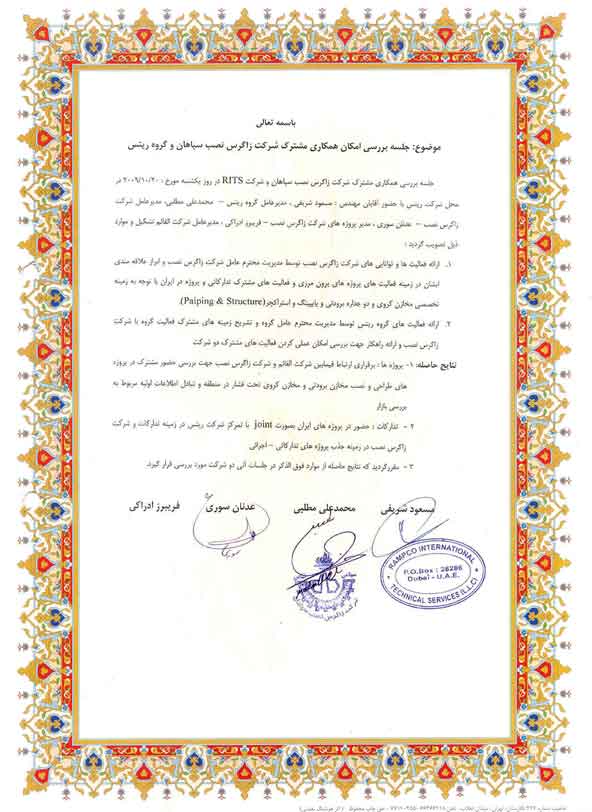 باسمه تعالی
موضوع: جلسه بررسی امکان همکاری مشترک شرکت زاگرس نصب سپاهان و گروه ریتس
جلسه بررسی همکاری مشترک شرکت زاگرس نصب سپاهان و شرکت RITS در روز یکشنبه مورخ ۲۰۰۹/۱۰/۲۰ در
محل شرکت ریتس با حضور آقایان مهندس : مسعود شریفی ، مدیرعامل گروه ریتس – محمدعلی مطلبی، مدیرعامل شرکت
زاگرس نصب – عدنان سوری ، مدیر پروژه های شرکت زاگرس نصب – فریبرز ادراکی ، مدیرعامل شرکت القائم تشکیل و موارد
ذیل تصویب گردید :
۱. ارائه فعالیت ها و توانایی های شرکت زاگرس نصب توسط مدیریت محترم عامل شرکت زاگرس نصب و ابراز علاقه مندی
ایشان در زمینه فعالیت های پروژه های برون مرزی و فعالیت های مشترک تدارکاتی و پروژه در ایران با توجه به زمینه
تخصصی مخازن کروی و دو جداره برودتی و پایپینگ و استراکچر(Paiping & Structure).
۲. ارائه فعالیت های گروه ریتس توسط مدیریت محترم عامل گروه و تشریح زمینه های مشترک فعالیت گروه با شرکت
زاگرس نصب و ارائه راهکار جهت بررسی امکان عملی کردن فعالیت های مشترک دو شرکت
نتایج حاصله: ۱- پروژه ها : برقراری ارتباط فیمابین شرکت القائم و شرکت زاگرس نصب جهت بررسی حضور مشترک در پروژه
های طراحی و نصب مخازن برودتی و مخازن کروی تحت فشار در منطقه و تبادل اطلاعات اولیه مربوط به
بررسی بازار
۲ - تدارکات : حضور در پروژه های ایران بصورت joint با تمرکز شرکت ریتس در زمینه تدارکات و شرکت
زاگرس نصب در زمینه جذب پروژه های تدارکاتی – اجرائی
۳ - مقررگردید که نتایج حاصله از موارد فوق الذکر در جلسات آتی دو شرکت مورد بررسی قرار گیرد.
مسعود شریفی محمدعلی مطلبی عدنان سوری فریبرز ادراکی
RAMPCO INTERNATIONAL
P.O.Box : 28286
Dubai - U.A.E.
TECHNICAL SERVICES (L.L.C)